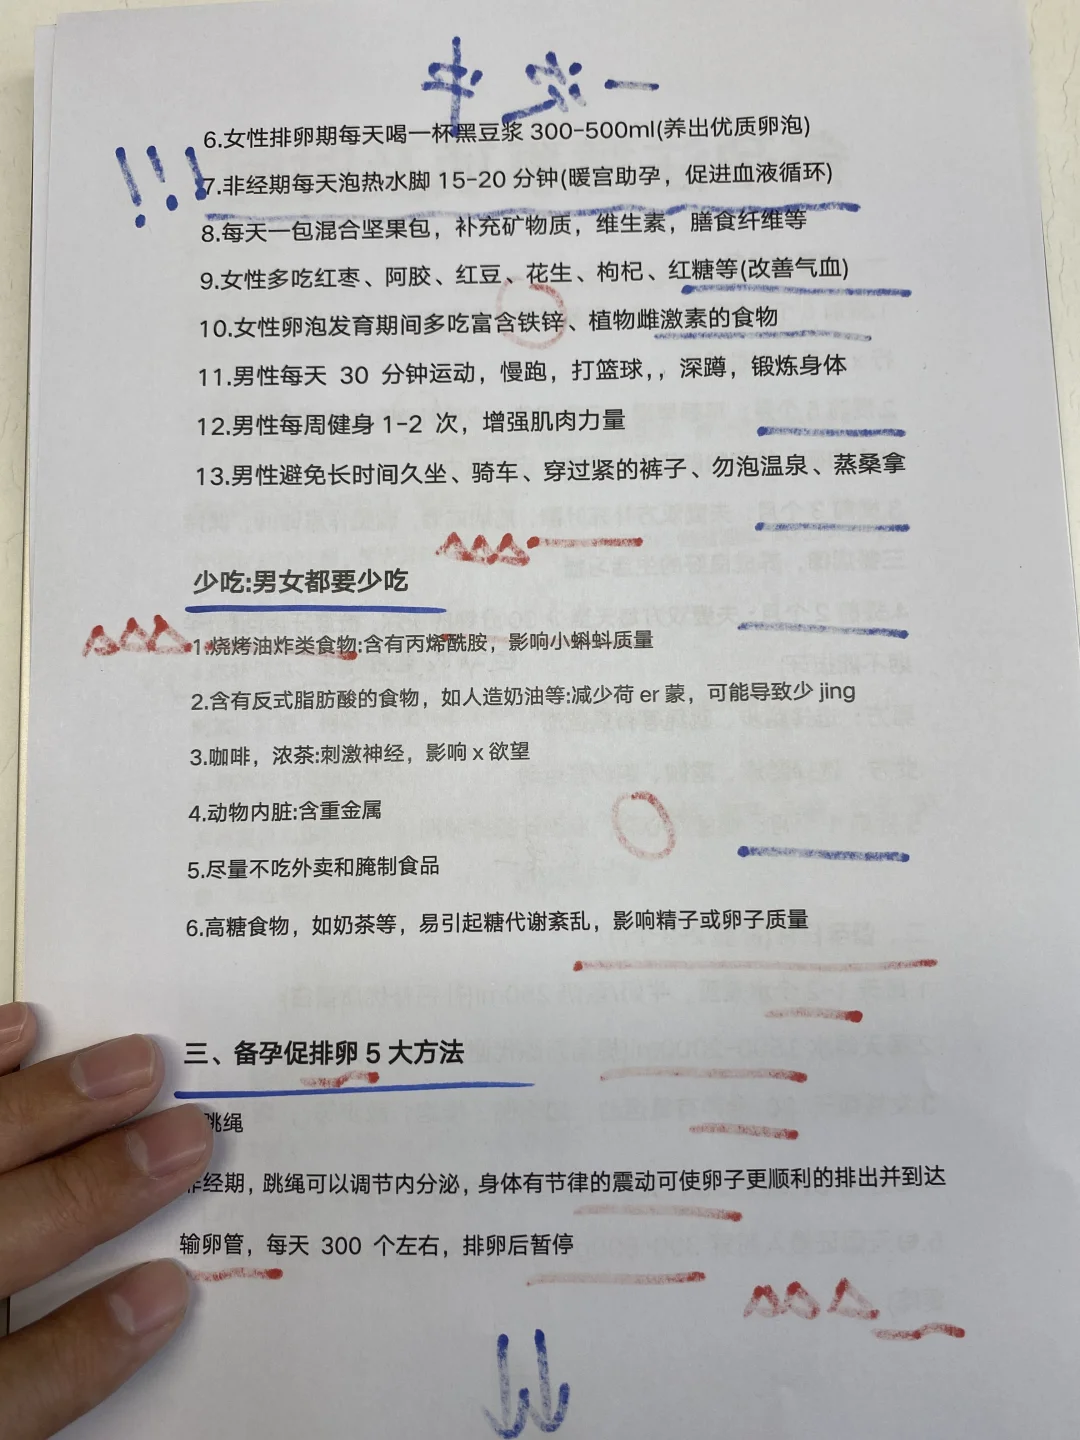 一次中
6.女性排卵期每天喝一杯黑豆浆 300-500ml(养出优质卵泡)
!!!
7.非经期每天泡热水脚 15-20 分钟(暖宫助孕，促进血液循环)
8.每天一包混合坚果包，补充矿物质，维生素，膳食纤维等
9.女性多吃红枣、阿胶、红豆、花生、枸杞、红糖等(改善气血)
10.女性卵泡发育期间多吃富含铁锌、植物雌激素的食物
11.男性每天 30 分钟运动，慢跑，打篮球，，深蹲，锻炼身体
12.男性每周健身 1-2 次，增强肌肉力量
13.男性避免长时间久坐、骑车、穿过紧的裤子、勿泡温泉、蒸桑拿
少吃:男女都要少吃
1.烧烤油炸类食物:含有丙烯酰胺，影响小蝌蚪质量
2.含有反式脂肪酸的食物，如人造奶油等:减少荷 er 蒙，可能导致少 jing
3.咖啡，浓茶:刺激神经，影响 x 欲望
4.动物内脏:含重金属
5.尽量不吃外卖和腌制食品
6.高糖食物，如奶茶等，易引起糖代谢紊乱，影响精子或卵子质量
三、备孕促排卵 5 大方法
跳绳
非经期，跳绳可以调节内分泌，身体有节律的震动可使卵子更顺利的排出并到达
输卵管，每天 300 个左右，排卵后暂停